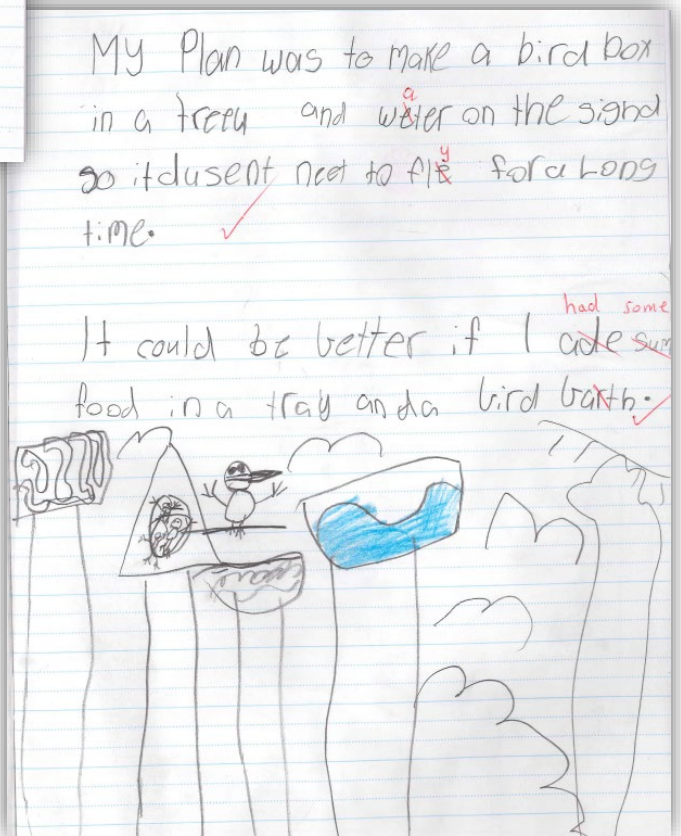 My Plan was to make a bird box
in a treeu and weter on the signd
a
so itdusent neet to fle for a Long
y
time.
had some
It could be better if I ade sum
food in a tray anda bird barth.